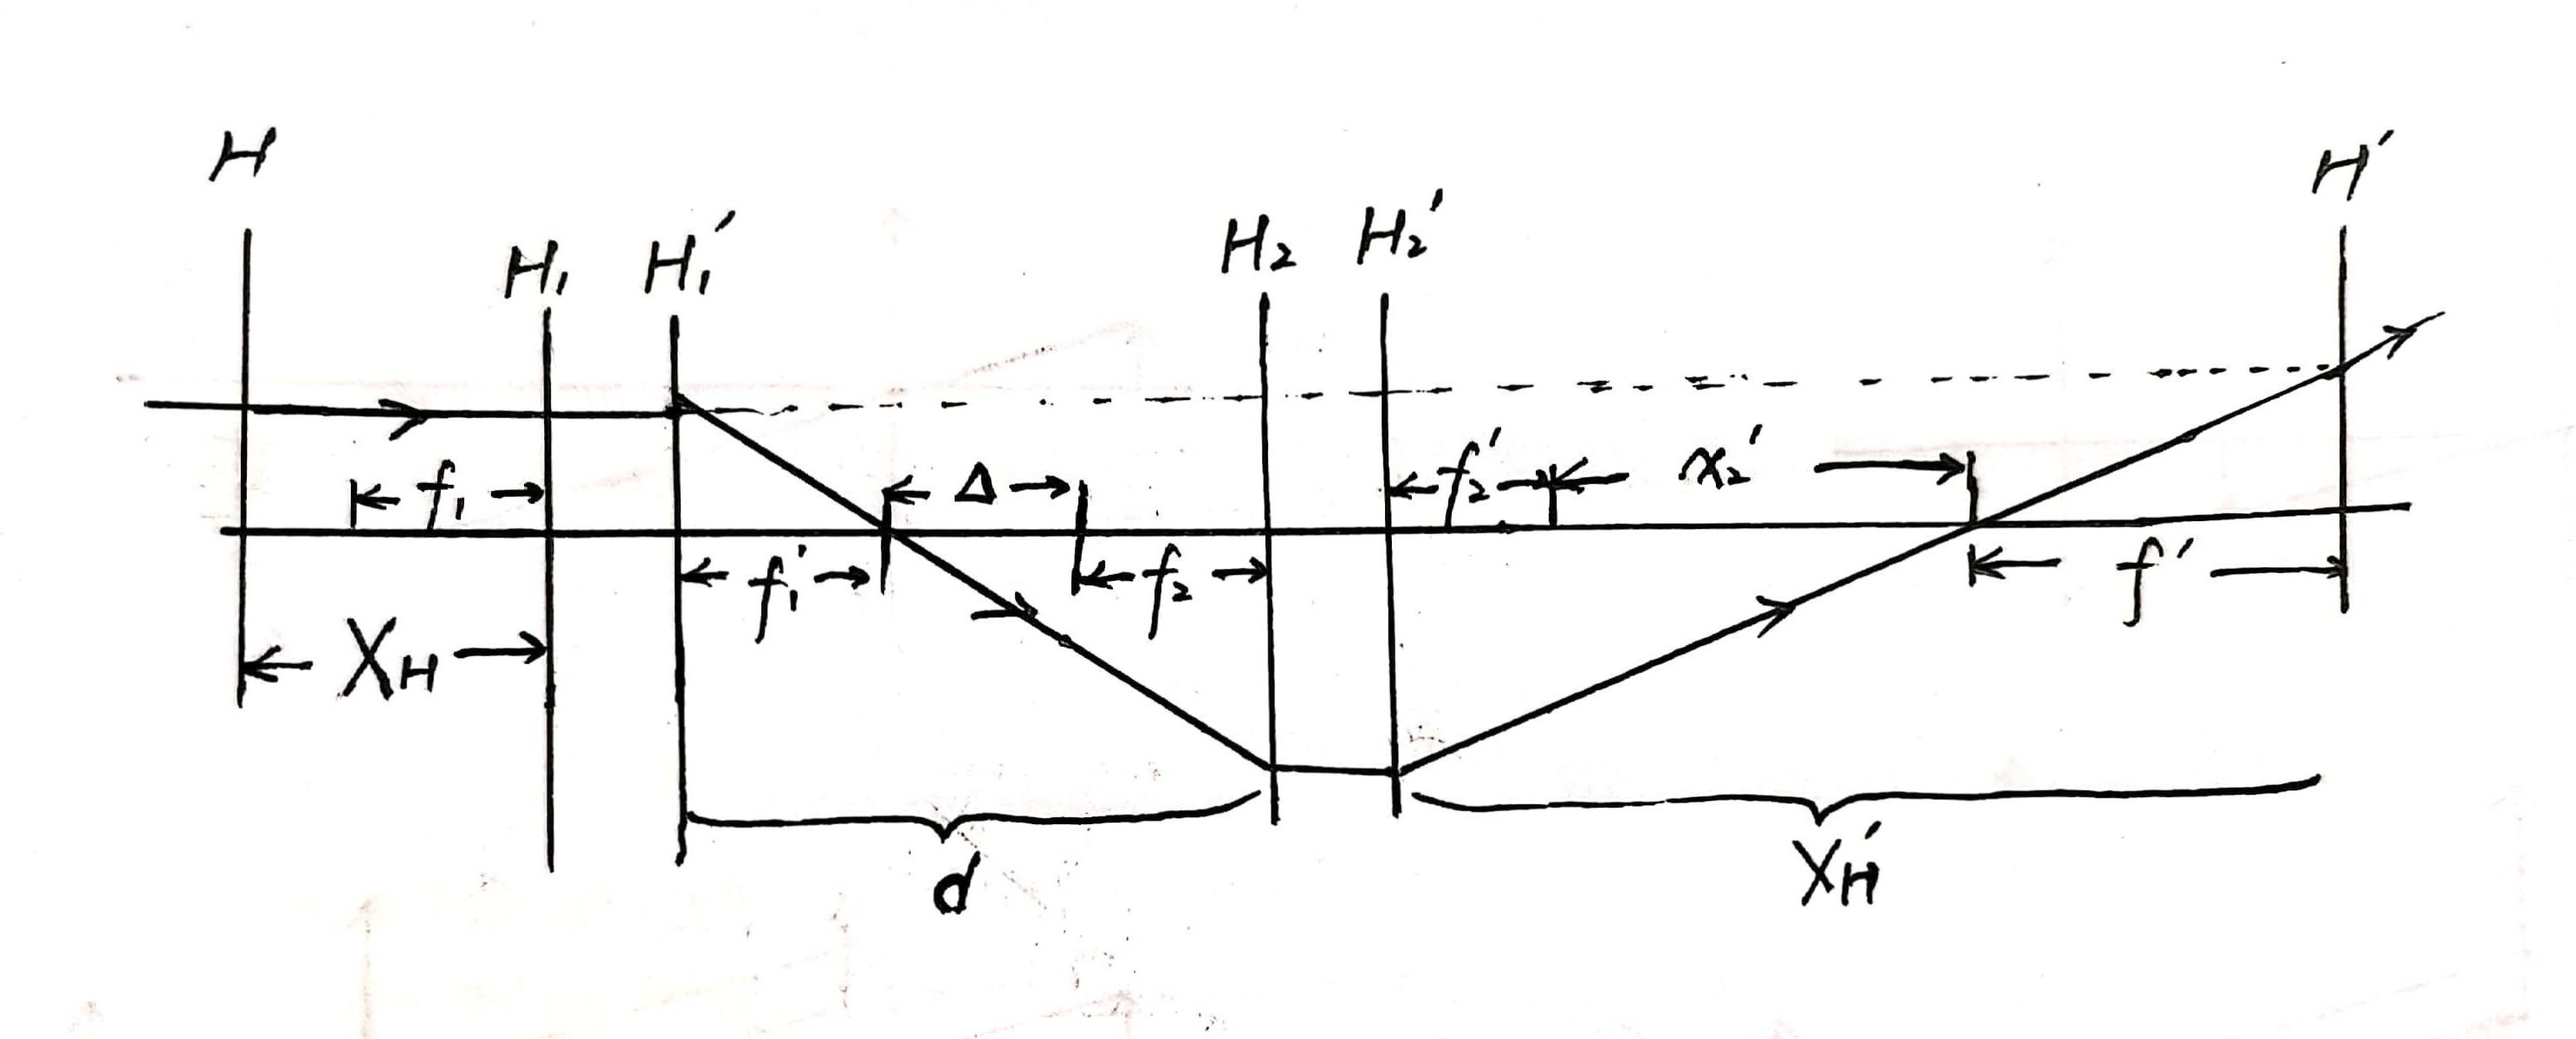 H
H'
H₁
H₁'
H₂
H₂'
f₁
Δ
f₂'
x₂'
f₁'
f₂
f'
X_H
d
X_H'